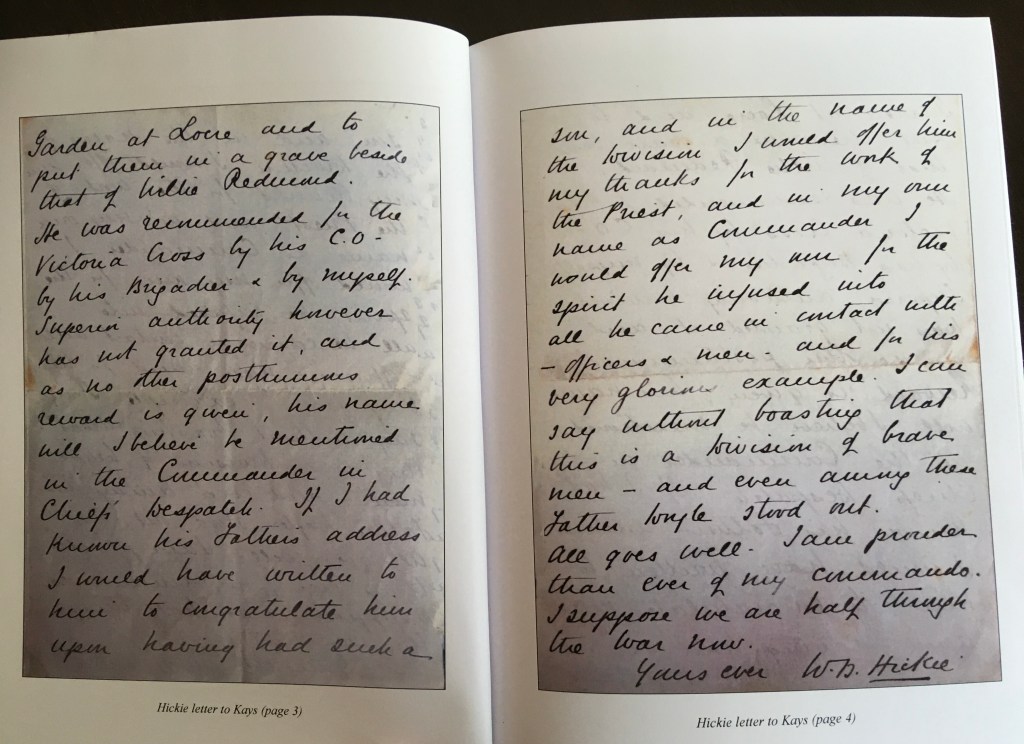 Garden at Locre and to
put them in a grave beside
that of Willie Redmond.
He was recommended for the
Victoria Cross by his C.O -
by his Brigadier & by myself.
Superior authority however
has not granted it, and
as no other posthumous
reward is given, his name
will I believe be mentioned
in the Commander in
Chief's Despatch. If I had
known his Fathers address
I would have written to
him to congratulate him
upon having had such a
Hickie letter to Kays (page 3)
son, and in the name of
the Division I would offer him
my thanks for the work of
the Priest, and in my own
name as Commander I
would offer my own for the
spirit he infused into
all he came in contact with
- officers & men - and for his
very glorious example. I can
say without boasting that
this is a Division of brave
men - and even among these
Father Doyle stood out.
All goes well. I am prouder
than ever of my commando.
I suppose we are half through
the War now.
Yours ever W.B. Hickie
Hickie letter to Kays (page 4)